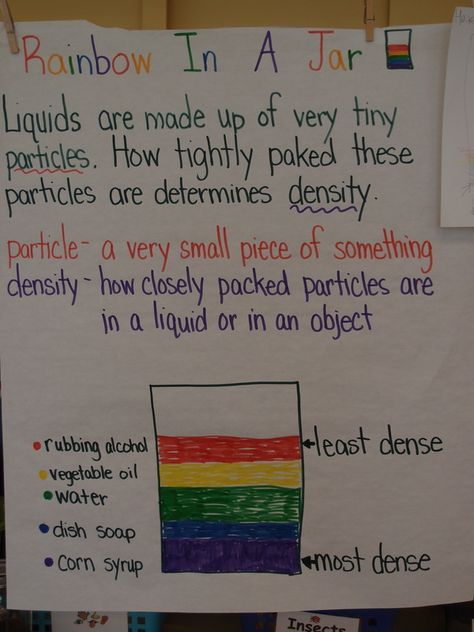 Rainbow In A Jar
Liquids are made up of very tiny
particles. How tightly paked these
particles are determines density.
particle- a very small piece of something
density- how closely packed particles are
in a liquid or in an object
rubbing alcohol
least dense
vegetable oil
water
dish soap
corn syrup
most dense
Insects